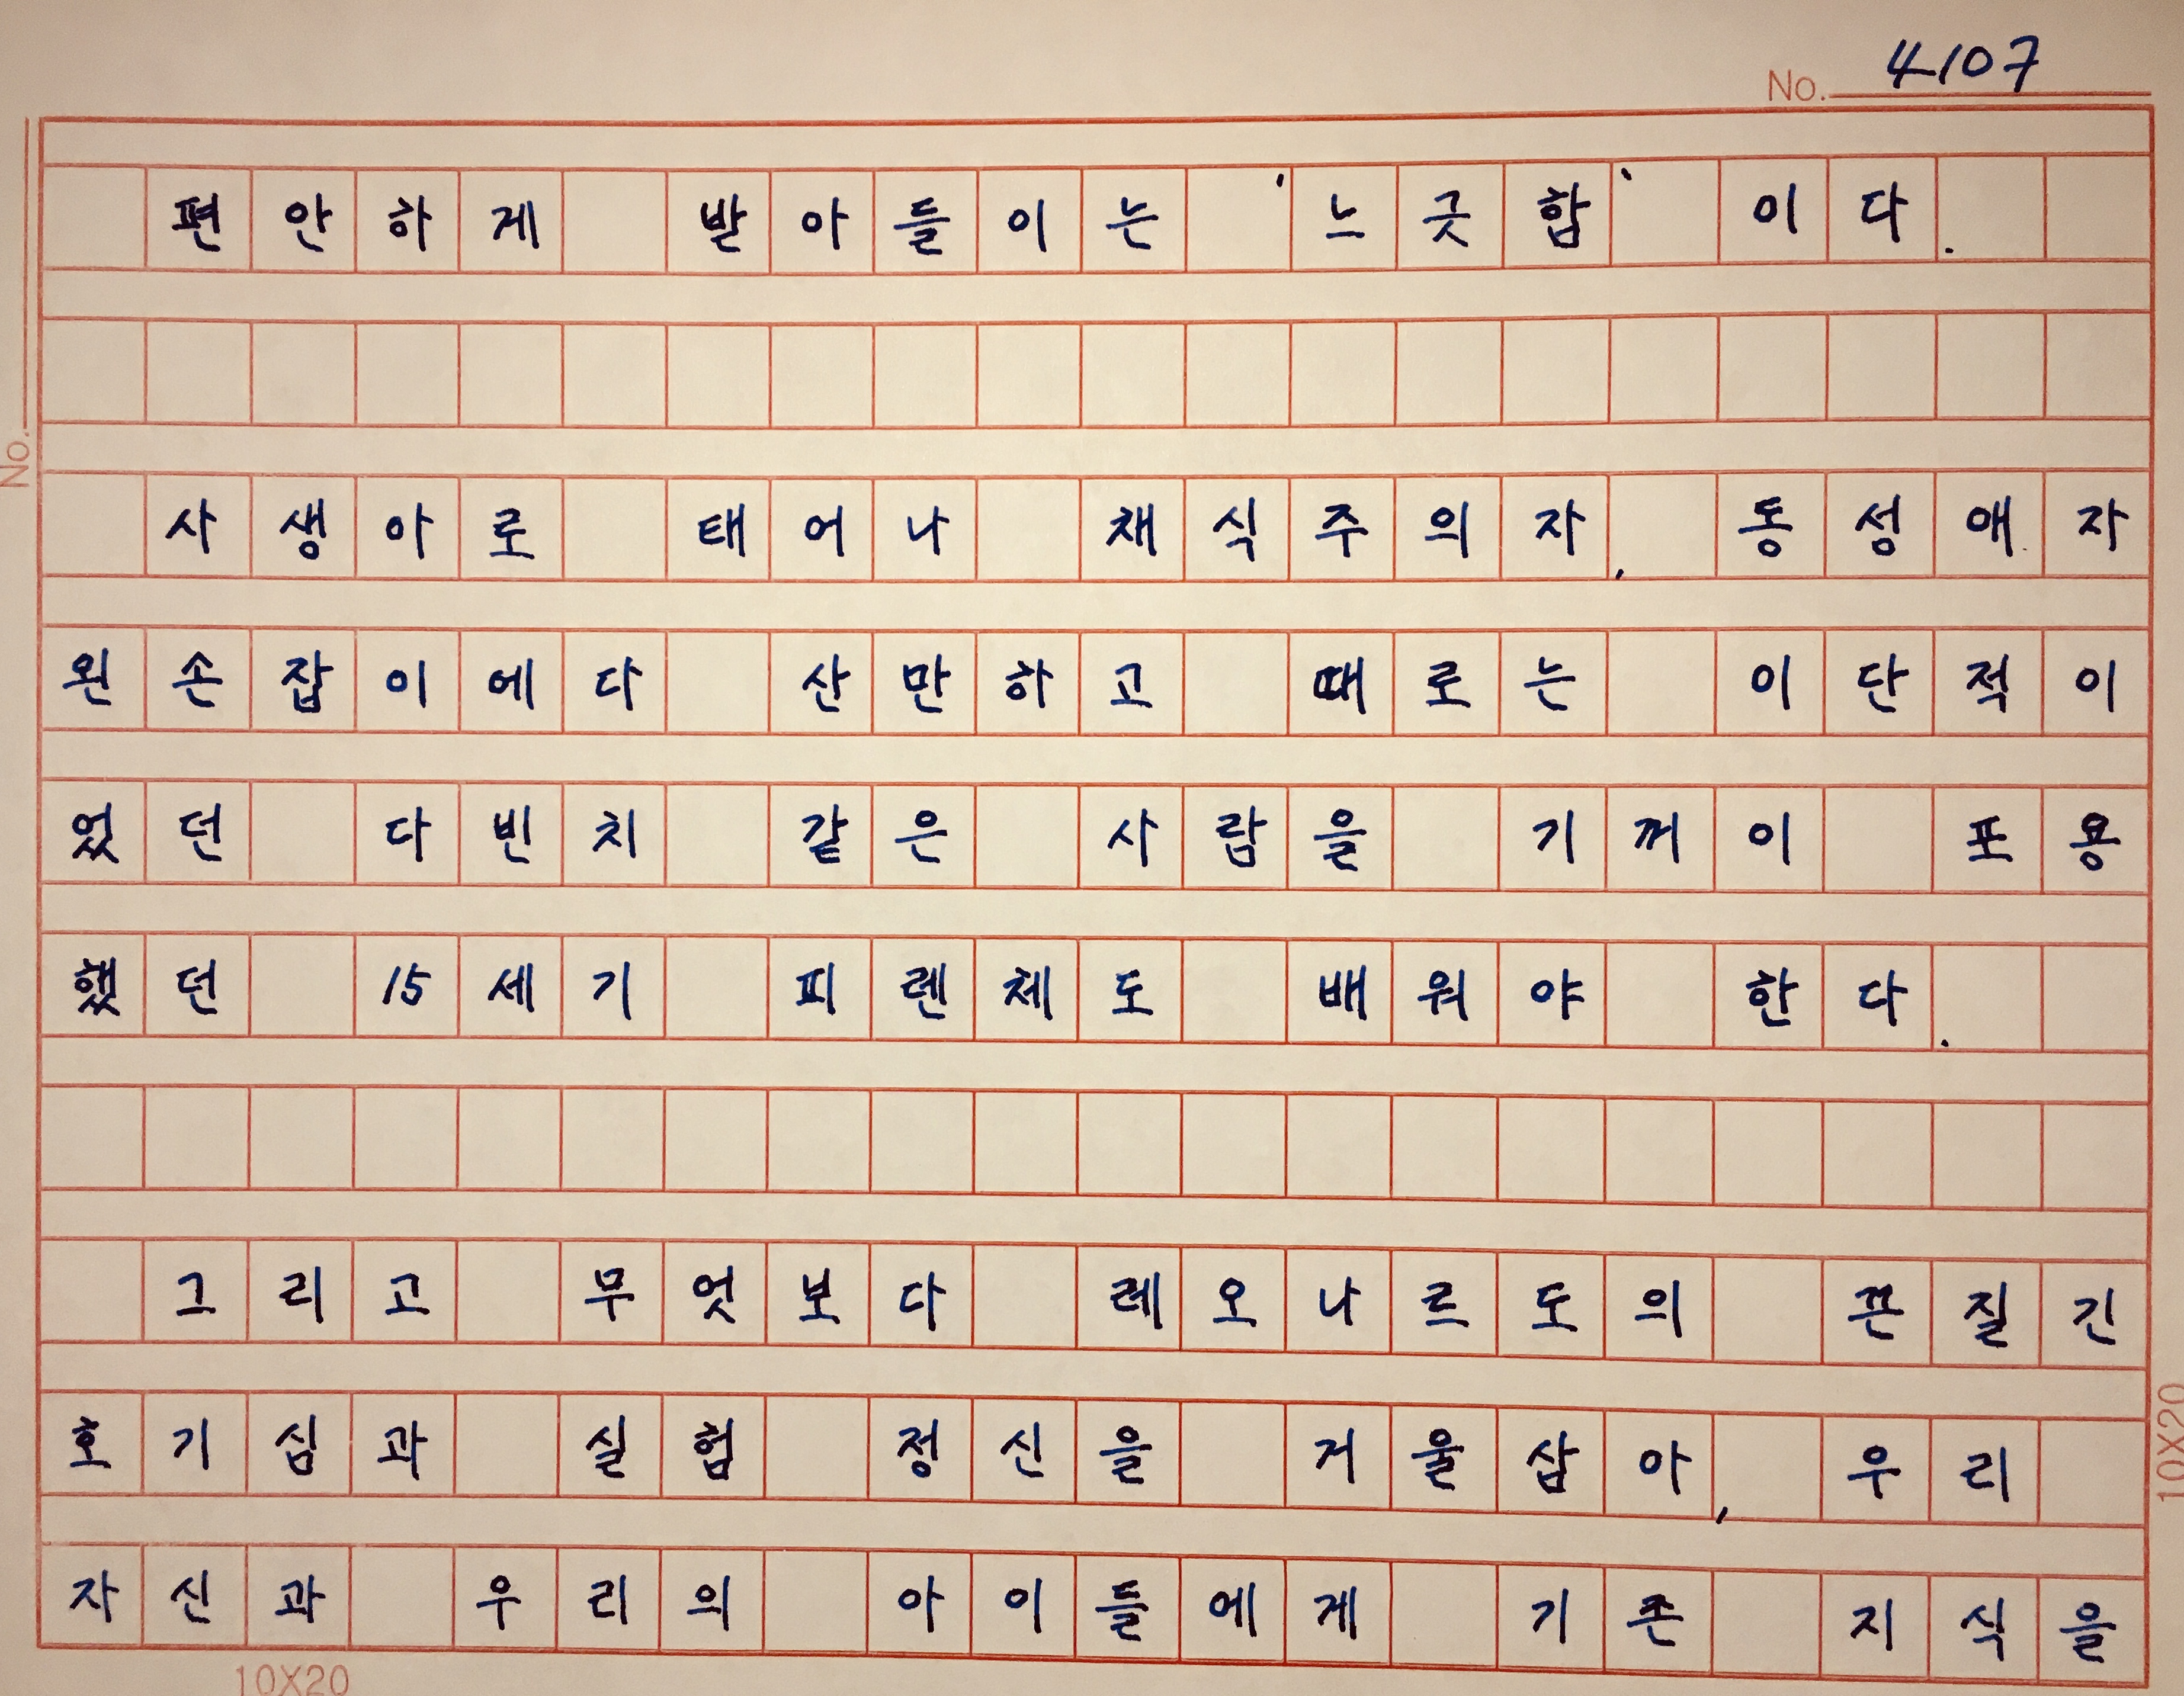 No. 4107
편안하게 받아들이는 '느긋함' 이다.
사생아로 태어나 채식주의자, 동성애자
왼손잡이에다 산만하고 때로는 이단적이
었던 다빈치 같은 사람을 기꺼이 포용
했던 15세기 피렌체도 배워야 한다.
그리고 무엇보다 레오나르도의 끈질긴
호기심과 실험 정신을 거울삼아, 우리
자신과 우리의 아이들에게 기존 지식을
No.
10X20
10X20